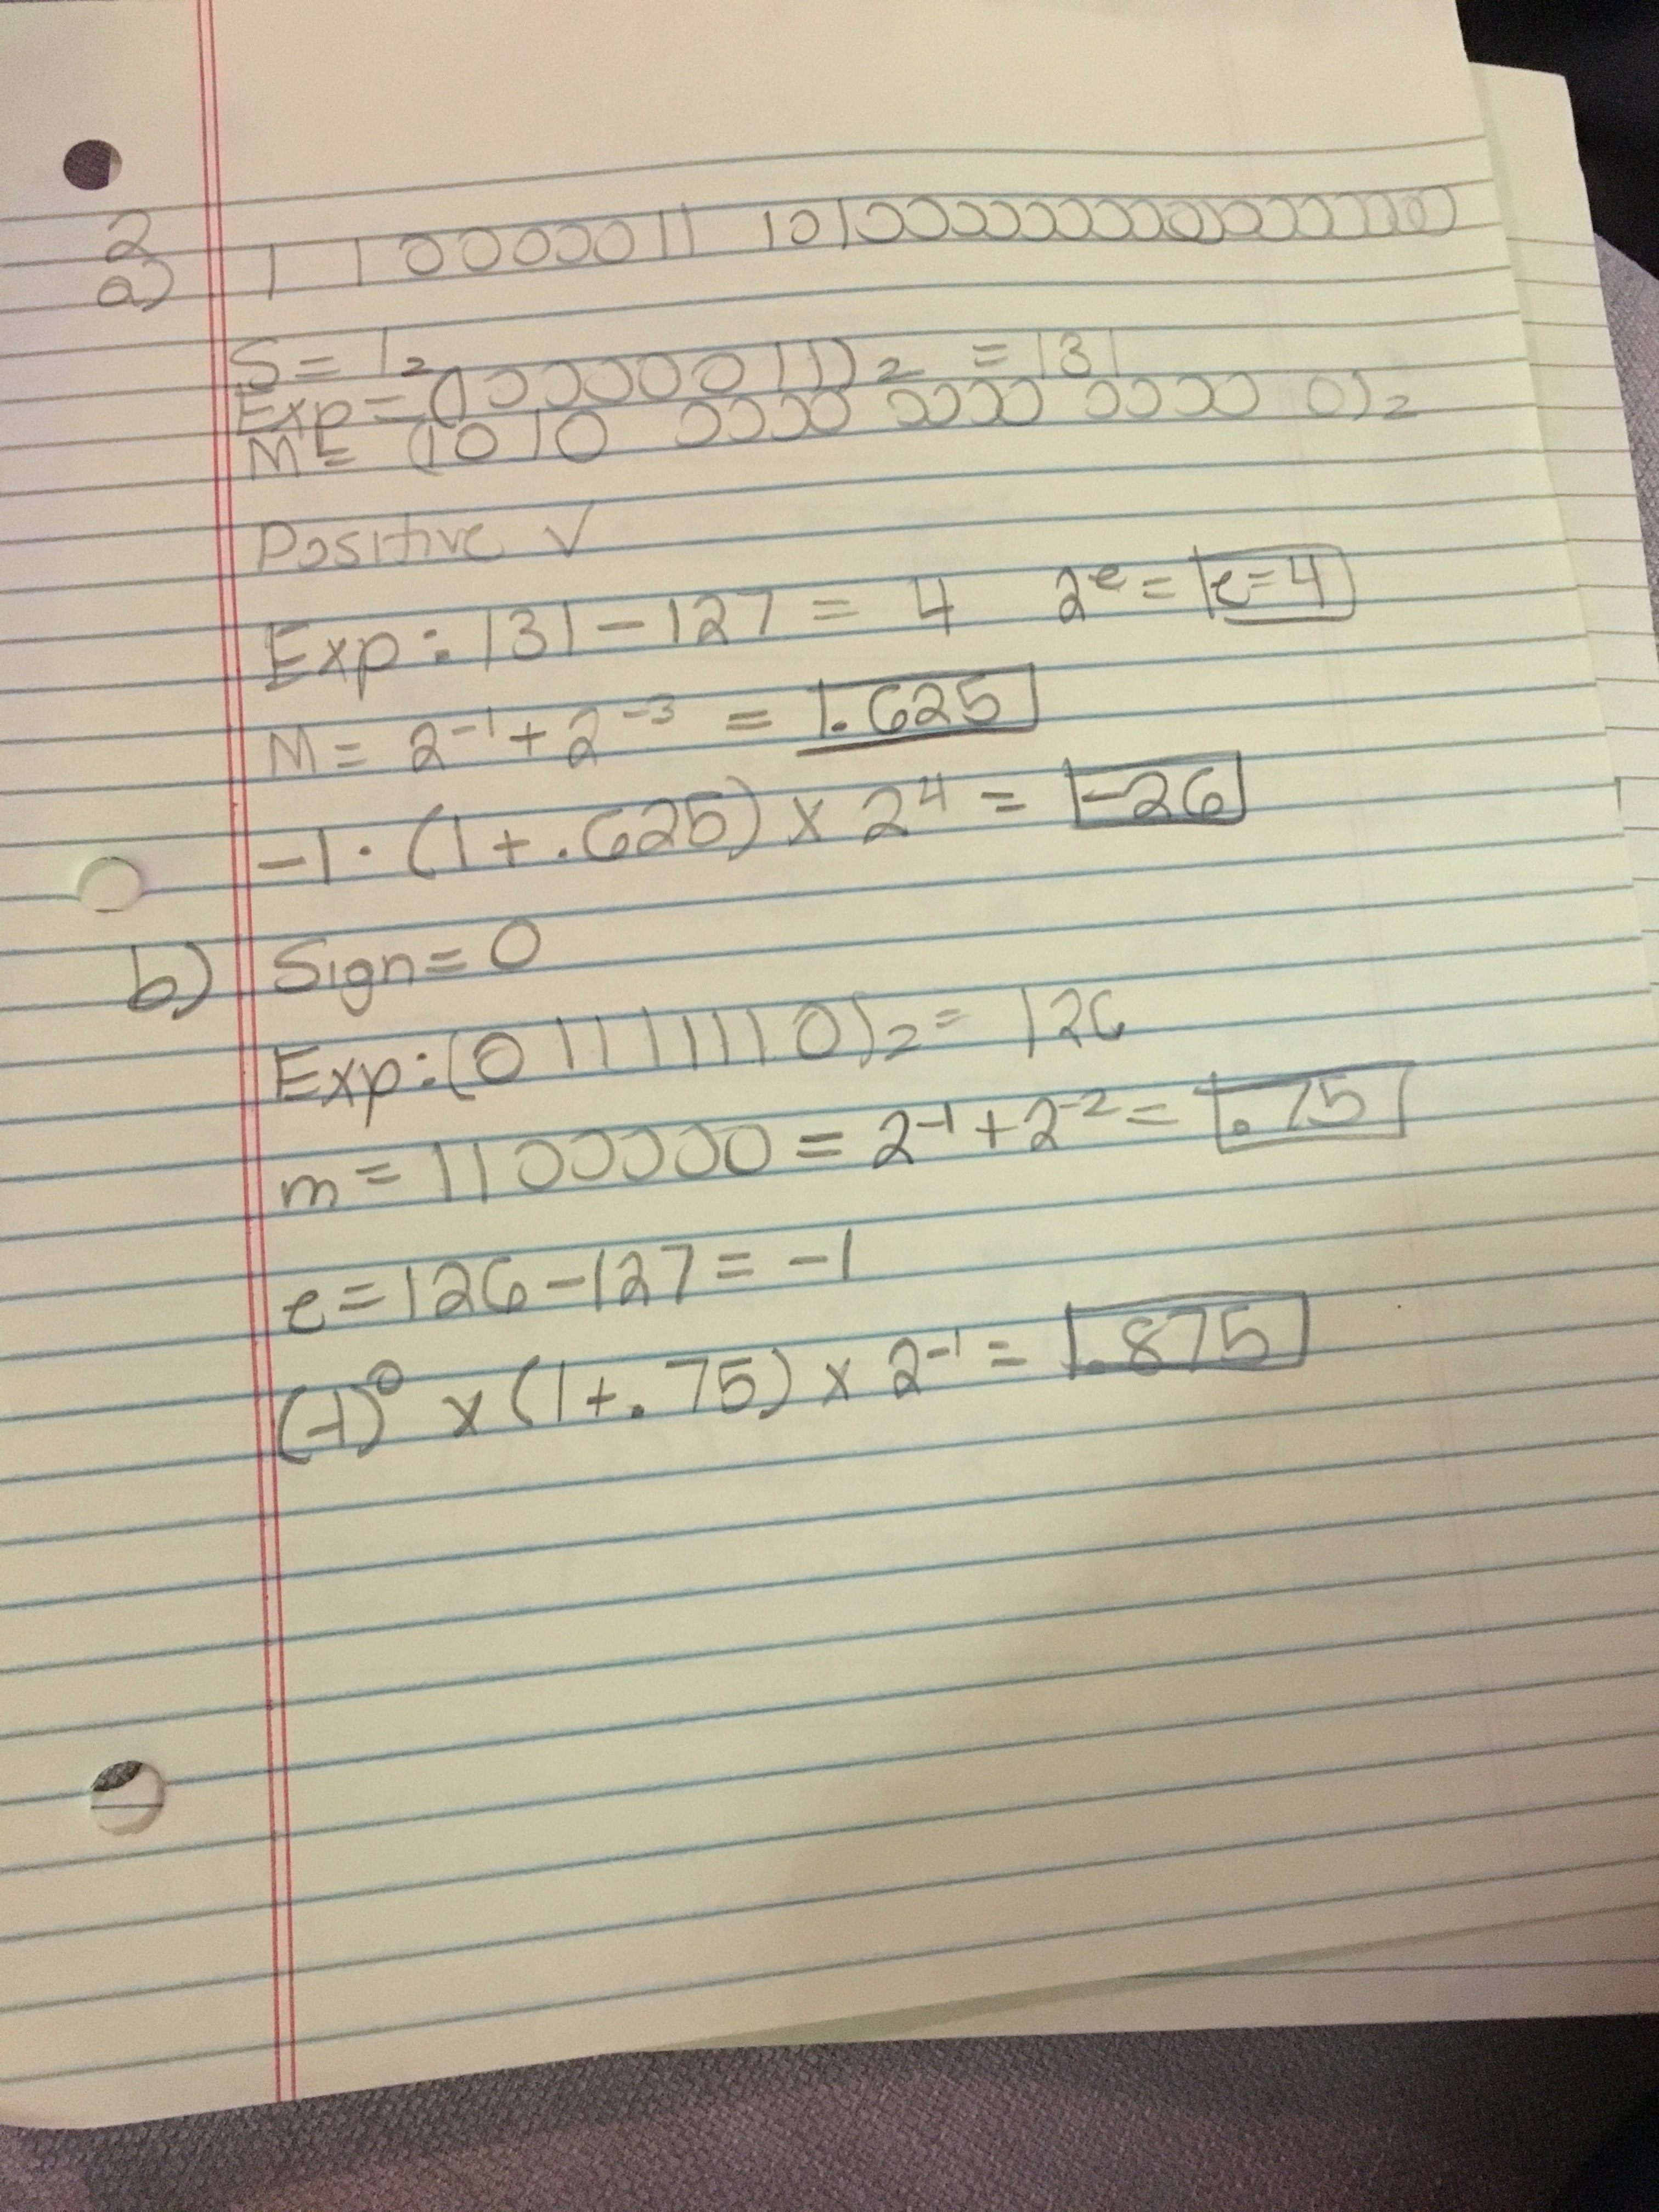 2
a) 1 10000011 10100000000000000000000
S = 1₂
Exp = (10000011)₂ = 131
M = (1010 0000 0000 0000 0)₂
Positive ✓
Exp: 131 - 127 = 4 2ᵉ = e=4
M = 2⁻¹ + 2⁻³ = 1.625
-1 · (1 + .625) x 2⁴ = -26
b) Sign = 0
Exp: (01111110)₂ = 126
m = 1100000 = 2⁻¹ + 2⁻² = .75
e = 126 - 127 = -1
(-1)⁰ x (1 + .75) x 2⁻¹ = .875